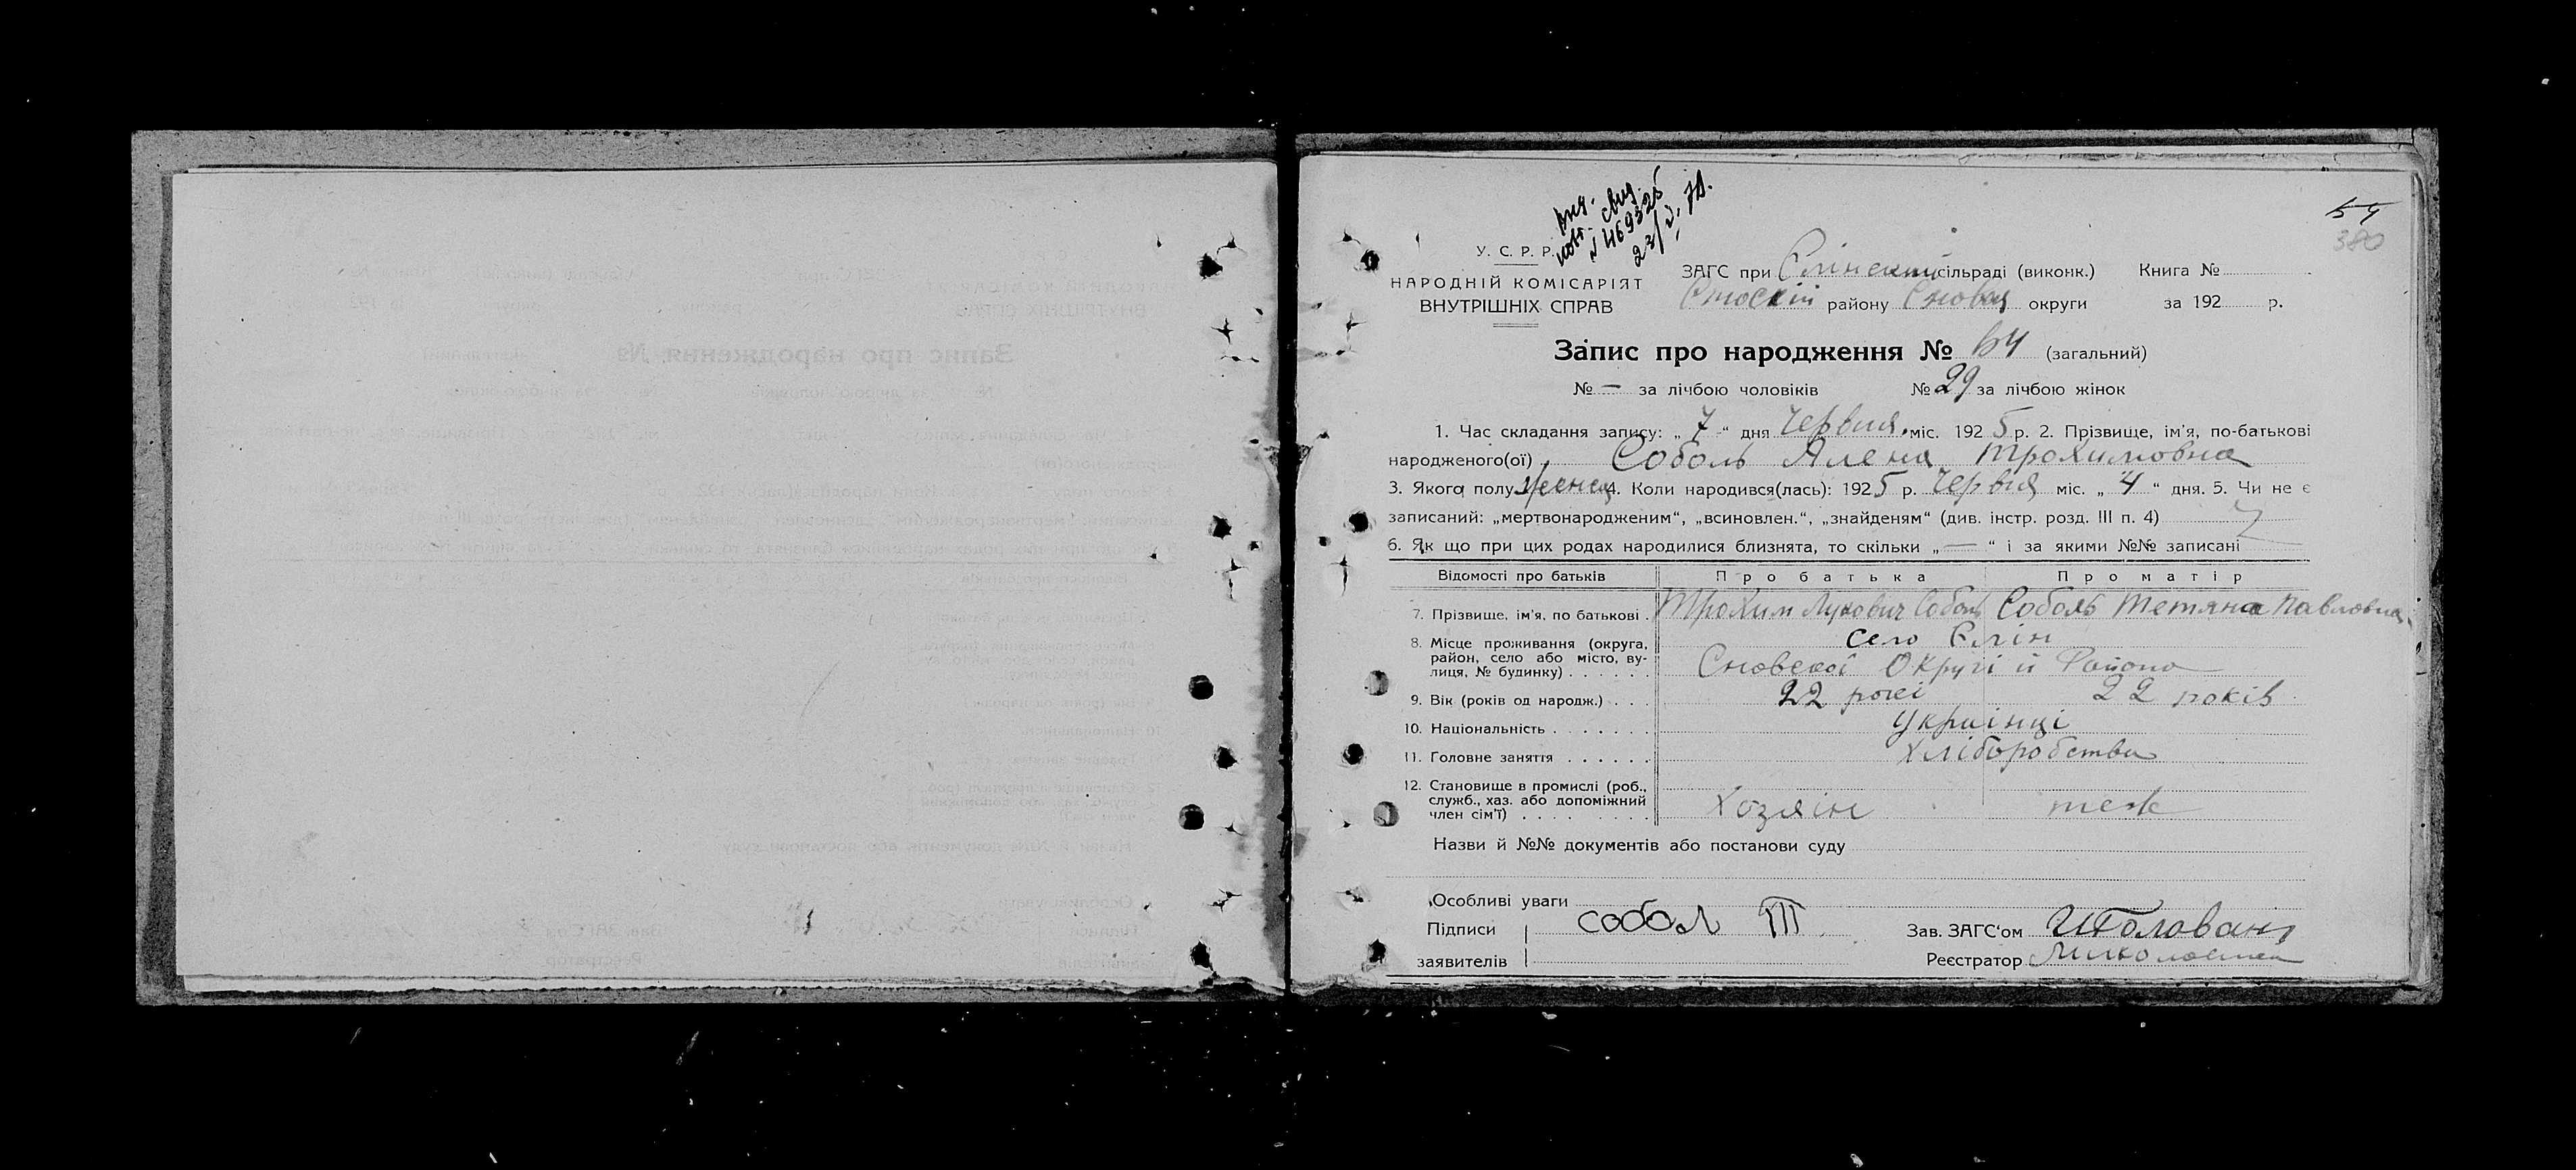 № 469325
54
380
У. С. Р. Р.
НАРОДНІЙ КОМІСАРІЯТ
ВНУТРІШНІХ СПРАВ
ЗАГС при Єлінский сільраді (виконк.) Книга №
району Сновск округи за 192 р.
Запис про народження № 54 (загальний)
№ — за лічбою чоловіків № 29 за лічбою жінок
1. Час складання запису: „ 7 “ дня Червня міс. 192 5 р. 2. Прізвище, ім'я, по-батькові
народженого(ої) Соболь Алена Трохимовна
3. Якого полу женск 4. Коли народився(лась): 192 5 р. Червня міс. „ 4 “ дня. 5. Чи не є
записаний: „мертвонародженим“, „всиновлен.“, „знайденям“ (див. інстр. розд. III п. 4)
6. Як що при цих родах народилися близнята, то скільки „ — “ і за якими №№ записані
Відомості про батьків Про батька Про матір
7. Прізвище, ім'я, по батькові . Трохим Лукович Соболь Соболь Тетяна Павловна
8. Місце проживання (округа, район, село або місто, вулиця, № будинку) . . . . . . село Єлін
Сновской Округі й Району
9. Вік (років од народж.) . . . 22 рокі 22 років
10. Національність . . . . . . . Українці
11. Головне заняття . . . . . . Хліборобство
12. Становище в промислі (роб., служб., хаз. або допоміжний член сім'ї) . . . . Хозяін теж
Назви й №№ документів або постанови суду
Особливі уваги
Підписи собол Т Зав. ЗАГС'ом Головань
заявителів Реєстратор